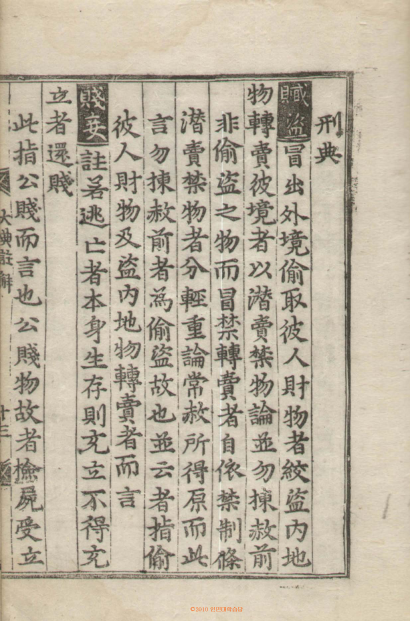 刑典
贓盜冒出外境偷取彼人財物者絞盜內地
物轉賣彼境者以潛賣禁物論並勿揀赦前
非偷盜之物而冒禁轉賣者自依禁制條
潛賣禁物者分輕重論常赦所得原而此
言勿揀赦前者為偷盜故也並云者指偷
彼人財物及盜內地物轉賣者而言
賤妾註若逃亡者本身生存則充立不得充
立者還賤
此指公賤而言也公賤物故者檢屍受立
大典註解 十三
©2010